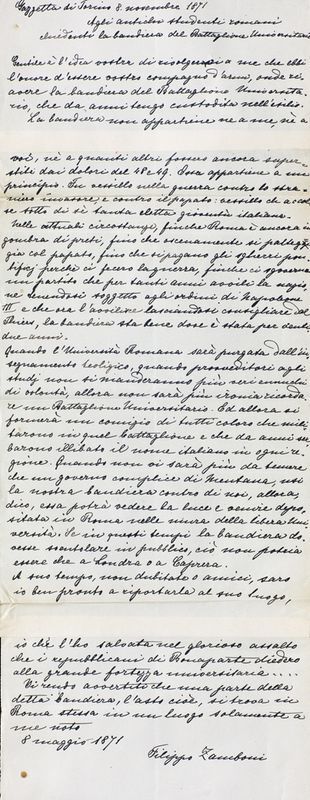 Gazzetta di Torino 8 novembre 1871
Agli antichi studenti romani
chiedenti la bandiera del Battaglione Universitario
Gentile è l'idea vostra di rivolgervi a me che ebbi
l'onore d'essere vostro compagno d'armi, onde ri-
avere la bandiera del Battaglione Universita-
rio, che da anni tengo custodita nell'esilio.
La bandiera non appartiene nè a me, nè a
voi, nè a quanti altri fossero ancora super-
stiti dai dolori del 48 e 49. Essa appartiene a un
principio. Fu vessillo nella guerra contro lo stra-
niero invasore, e contro il papato: vessillo che accol-
se sotto di sè tanta eletta gioventù italiana.
Nelle attuali circostanze, finchè Roma è ancora in-
gombra di preti, fino che oscenamente si patteg-
gia col papato, fino che si pagano gli sgherri pon-
tificj perchè ci fecero la guerra, finche ci sgoverna
un partito che per tanti anni avvilì la nazio-
ne tenendosi soggetto agli ordini di Napoleone
III e che ora l'avvilisce lasciandosi consigliare dal
Thiers, la bandiera sta bene dove è stata per venti-
due anni.
Quando l'Università Romana sarà purgata dall'in-
segnamento teologico, quando provveditori agli
studj non si manderanno più veri eunuchi
di volontà, allora non sarà più ironia ricorda-
re un Battaglione Universitario. Ed allora si
formerà un comizio di tutti coloro che mili-
tarono in quel Battaglione e che da anni ser-
barono illibato il nome italiano in ogni re-
gione. Quando non vi sarà più da temere
che un governo complice di Mentana, usi
la nostra bandiera contro di noi, allora,
dico, essa potrà vedere la luce e venire depo-
sitata in Roma nelle mura della libera Uni-
versità. Se in questi tempi la bandiera do-
vesse sventolare in pubblico, ciò non potria
essere che a Londra o a Caprera.
A suo tempo, non dubitate o amici, sarò
io ben pronto a riportarla al suo luogo,
io che l'ho salvata nel glorioso assalto
che i repubblicani di Bonaparte diedero
alla grande fortezza universitaria....
Vi rendo avvertiti che una parte della
detta bandiera, l'asta cioè, si trova in
Roma stessa in un luogo solamente a
me noto
8 maggio 1871
Filippo Zamboni